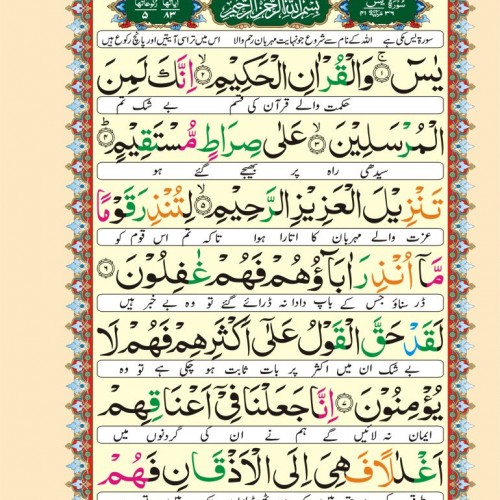 سورة يس ٣٦ مكية ٤١ بسم الله الرحمن الرحيم آیاتها ٨٣ رکوعاتها ٥
سورۃ یٰس مکی ہے اللہ کے نام سے شروع جو نہایت مہربان رحم والا اس میں تراسی آیتیں اور پانچ رکوع ہیں
يٰسٓ ۚ﴿۱﴾ وَالْقُرْاٰنِ الْحَكِيْمِ ۙ﴿۲﴾ اِنَّكَ لَمِنَ
حکمت والے قرآن کی قسم بے شک تم
الْمُرْسَلِيْنَ ۙ﴿۳﴾ عَلٰى صِرَاطٍ مُّسْتَقِيْمٍ ؕ﴿۴﴾
سیدھی راہ پر بھیجے گئے ہو
تَنْزِيْلَ الْعَزِيْزِ الرَّحِيْمِ ۙ﴿۵﴾ لِتُنْذِرَ قَوْمًا
عزت والے مہربان کا اتارا ہوا تاکہ تم اس قوم کو
مَّاۤ اُنْذِرَ اٰبَآؤُهُمْ فَهُمْ غٰفِلُوْنَ ﴿۶﴾
ڈر سناؤ جس کے باپ دادا نہ ڈرائے گئے تو وہ بے خبر ہیں
لَقَدْ حَقَّ الْقَوْلُ عَلٰۤى اَكْثَرِهِمْ فَهُمْ لَا
بے شک ان میں اکثر پر بات ثابت ہو چکی ہے تو وہ
يُؤْمِنُوْنَ ﴿۷﴾ اِنَّا جَعَلْنَا فِيْۤ اَعْنَاقِهِمْ
ایمان نہ لائیں گے ہم نے ان کی گردنوں میں
اَغْلٰلًا فَهِىَ اِلَى الْاَذْقَانِ فَهُمْ